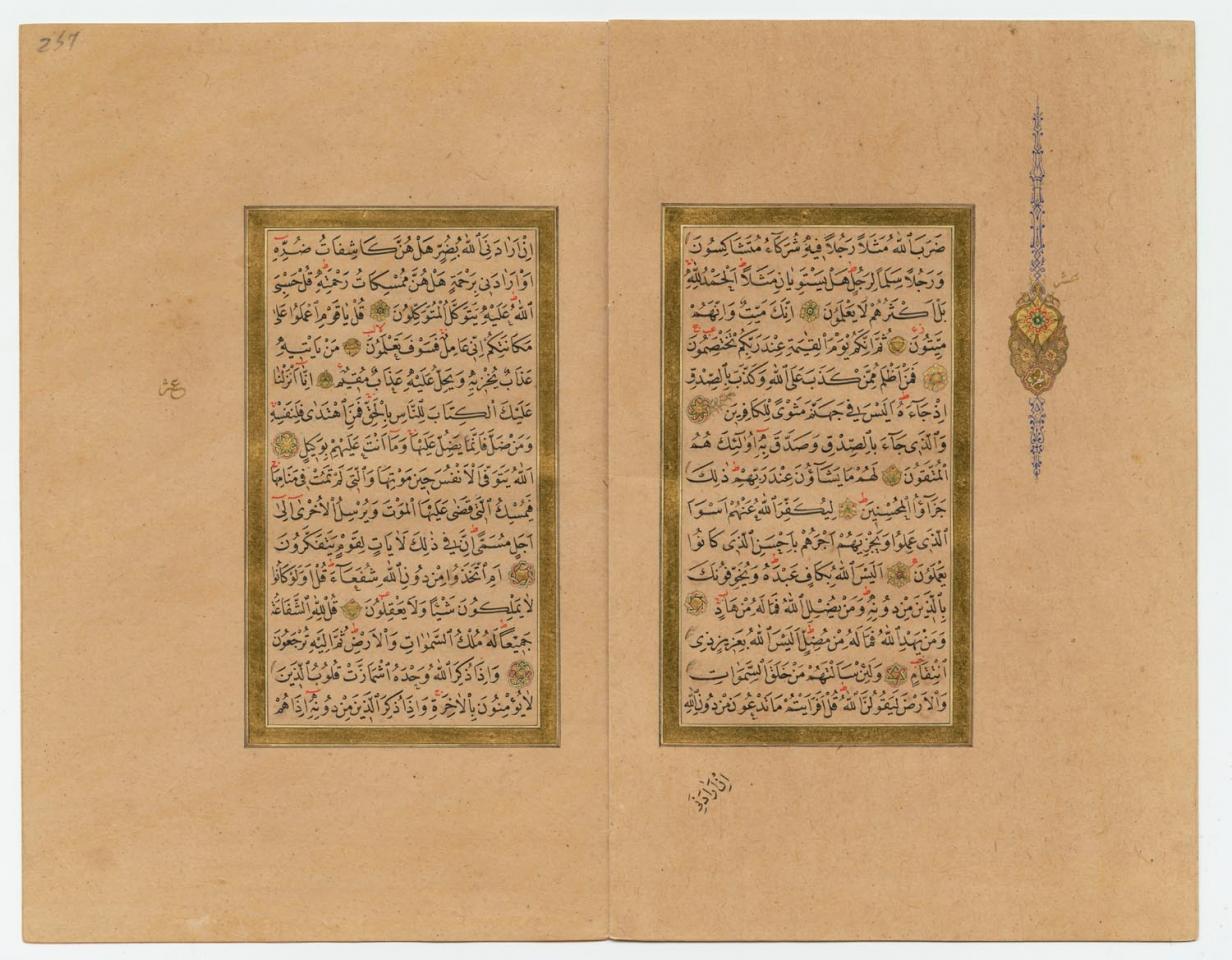 ضَرَبَ ٱللهُ مَثَلًا رَجُلًا فِيهِ شُرَكَاءُ مُتَشَاكِسُونَ
وَرَجُلًا سَلَمًا لِرَجُلٍ هَلْ يَسْتَوِيَانِ مَثَلًا اَلْحَمْدُ لِلهِ
بَلْ اَكْثَرُهُمْ لَا يَعْلَمُونَ اِنَّكَ مَيِّتٌ وَاِنَّهُمْ
مَيِّتُونَ ثُمَّ اِنَّكُمْ يَوْمَ الْقِيٰمَةِ عِنْدَ رَبِّكُمْ تَخْتَصِمُونَ
فَمَنْ اَظْلَمُ مِمَّنْ كَذَبَ عَلَى اللهِ وَكَذَّبَ بِالصِّدْقِ
اِذْ جَاءَهُ اَلَيْسَ فِي جَهَنَّمَ مَثْوًى لِلْكَافِرِينَ
وَالَّذِي جَاءَ بِالصِّدْقِ وَصَدَّقَ بِهِ اُولٰئِكَ هُمُ
الْمُتَّقُونَ لَهُمْ مَا يَشَاؤُنَ عِنْدَ رَبِّهِمْ ذٰلِكَ
جَزَاؤُا الْمُحْسِنِينَ لِيُكَفِّرَ اللهُ عَنْهُمْ اَسْوَاَ
الَّذِي عَمِلُوا وَيَجْزِيَهُمْ اَجْرَهُمْ بِاَحْسَنِ الَّذِي كَانُوا
يَعْمَلُونَ اَلَيْسَ اللهُ بِكَافٍ عَبْدَهُ وَيُخَوِّفُونَكَ
بِالَّذِينَ مِنْ دُونِهِ وَمَنْ يُضْلِلِ اللهُ فَمَا لَهُ مِنْ هَادٍ
وَمَنْ يَهْدِ اللهُ فَمَا لَهُ مِنْ مُضِلٍّ اَلَيْسَ اللهُ بِعَزِيزٍ ذِي
انْتِقَامٍ وَلَئِنْ سَاَلْتَهُمْ مَنْ خَلَقَ السَّمٰوَاتِ
وَالْاَرْضَ لَيَقُولُنَّ اللهُ قُلْ اَفَرَاَيْتُمْ مَا تَدْعُونَ مِنْ دُونِ اللهِ
اِنْ اَرَادَنِيَ
اِنْ اَرَادَنِيَ اللهُ بِضُرٍّ هَلْ هُنَّ كَاشِفَاتُ ضُرِّهِ
اَوْ اَرَادَنِي بِرَحْمَةٍ هَلْ هُنَّ مُمْسِكَاتُ رَحْمَتِهِ قُلْ حَسْبِيَ
اللهُ عَلَيْهِ يَتَوَكَّلُ الْمُتَوَكِّلُونَ قُلْ يَا قَوْمِ اعْمَلُوا عَلٰى
مَكَانَتِكُمْ اِنِّي عَامِلٌ فَسَوْفَ تَعْلَمُونَ مَنْ يَاْتِيهِ
عَذَابٌ يُخْزِيهِ وَيَحِلُّ عَلَيْهِ عَذَابٌ مُقِيمٌ اِنَّا اَنْزَلْنَا
عَلَيْكَ الْكِتَابَ لِلنَّاسِ بِالْحَقِّ فَمَنِ اهْتَدٰى فَلِنَفْسِهِ
وَمَنْ ضَلَّ فَاِنَّمَا يَضِلُّ عَلَيْهَا وَمَا اَنْتَ عَلَيْهِمْ بِوَكِيلٍ
اَللهُ يَتَوَفَّى الْاَنْفُسَ حِينَ مَوْتِهَا وَالَّتِي لَمْ تَمُتْ فِي مَنَامِهَا
فَيُمْسِكُ الَّتِي قَضٰى عَلَيْهَا الْمَوْتَ وَيُرْسِلُ الْاُخْرٰى اِلٰى
اَجَلٍ مُسَمًّى اِنَّ فِي ذٰلِكَ لَاٰيَاتٍ لِقَوْمٍ يَتَفَكَّرُونَ
اَمِ اتَّخَذُوا مِنْ دُونِ اللهِ شُفَعَاءَ قُلْ اَوَلَوْ كَانُوا
لَا يَمْلِكُونَ شَيْئًا وَلَا يَعْقِلُونَ قُلْ لِلهِ الشَّفَاعَةُ
جَمِيعًا لَهُ مُلْكُ السَّمٰوَاتِ وَالْاَرْضِ ثُمَّ اِلَيْهِ تُرْجَعُونَ
وَاِذَا ذُكِرَ اللهُ وَحْدَهُ اشْمَاَزَّتْ قُلُوبُ الَّذِينَ
لَا يُؤْمِنُونَ بِالْاٰخِرَةِ وَاِذَا ذُكِرَ الَّذِينَ مِنْ دُونِهِ اِذَا هُمْ
عشر
257